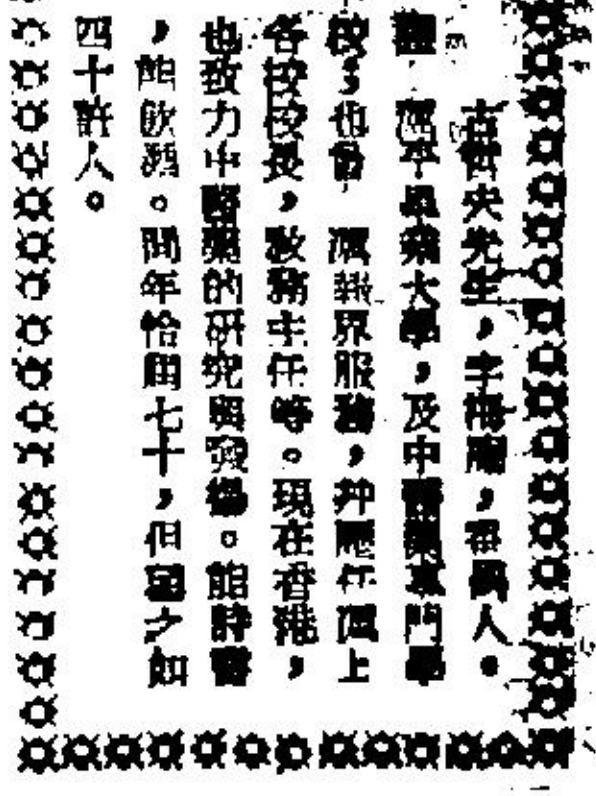 央先生,字梅,番禺人。
滬卒業大學,及中醫藥專門學
校;也曾滬報界服務,并歷任滬上
各校校長,教務主任等。現在香港,
也致力中醫藥的研究與發揚。能詩書
,能飲酒。閱年恰周七十,但望之如
四十許人。